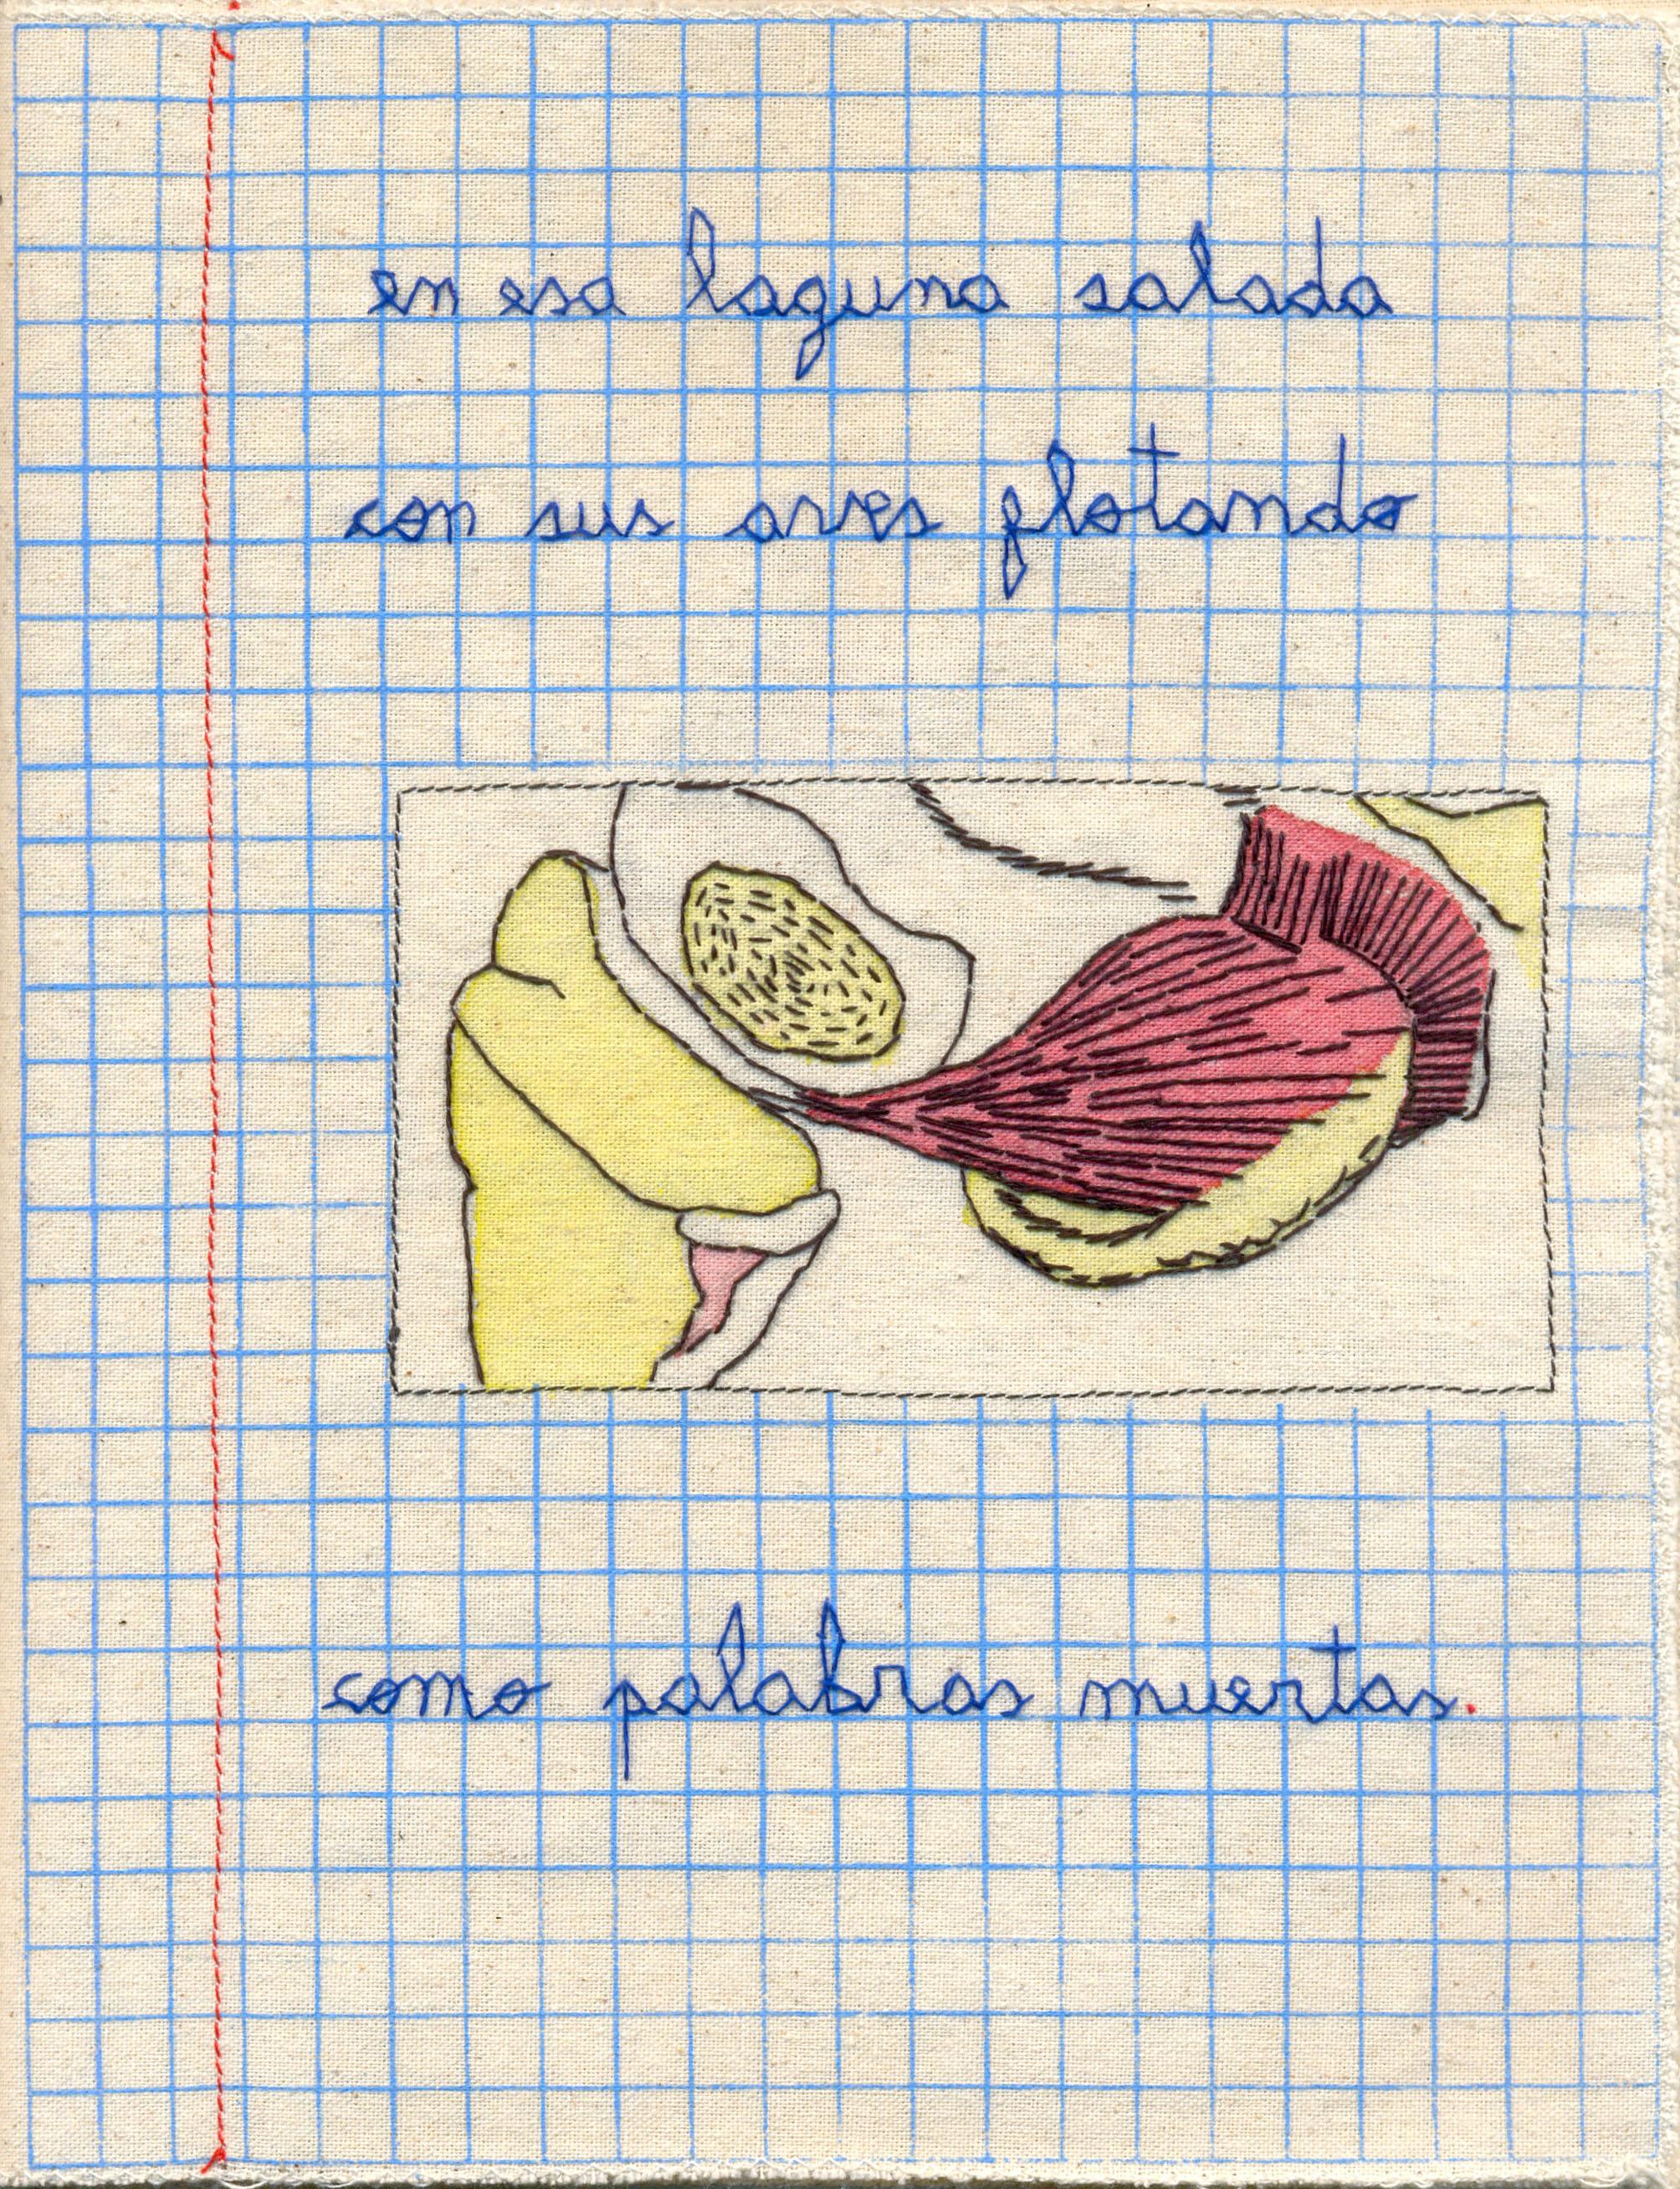 en esa laguna salada
con sus aves flotando
como palabras muertas.